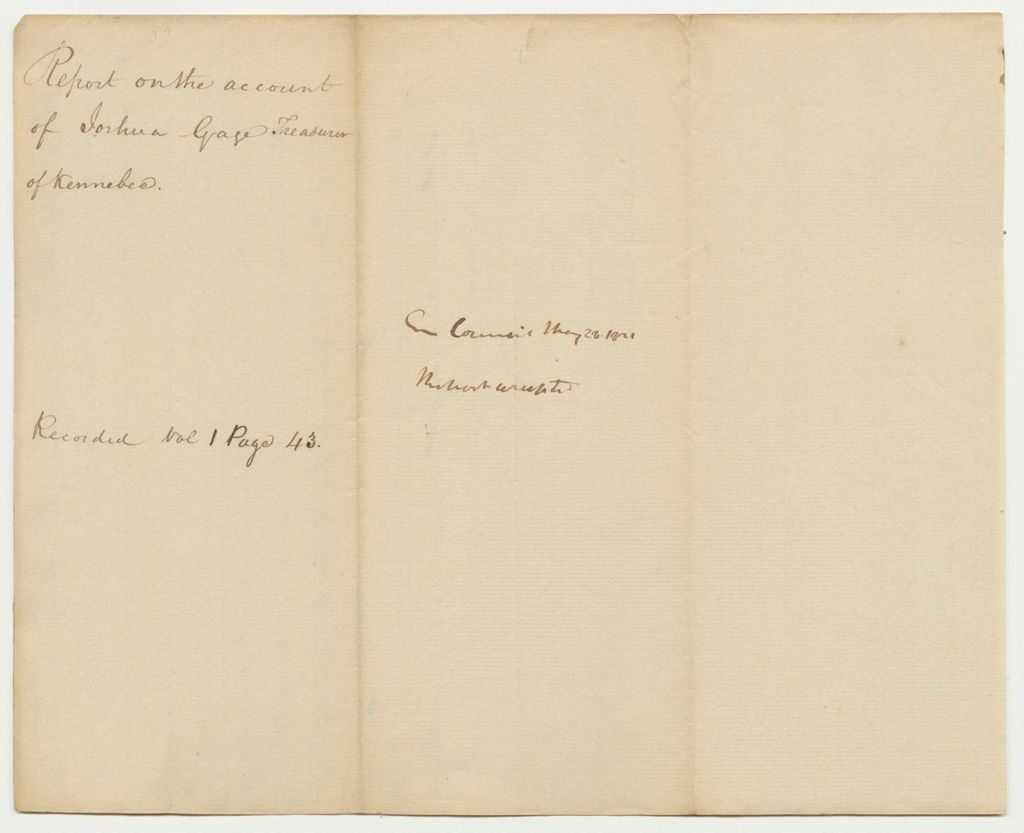 Report on the account
of Joshua Gage Treasurer
of Kennebec.
Recorded Vol 1 Page 43.
In Council May 28 1821
Report accepted